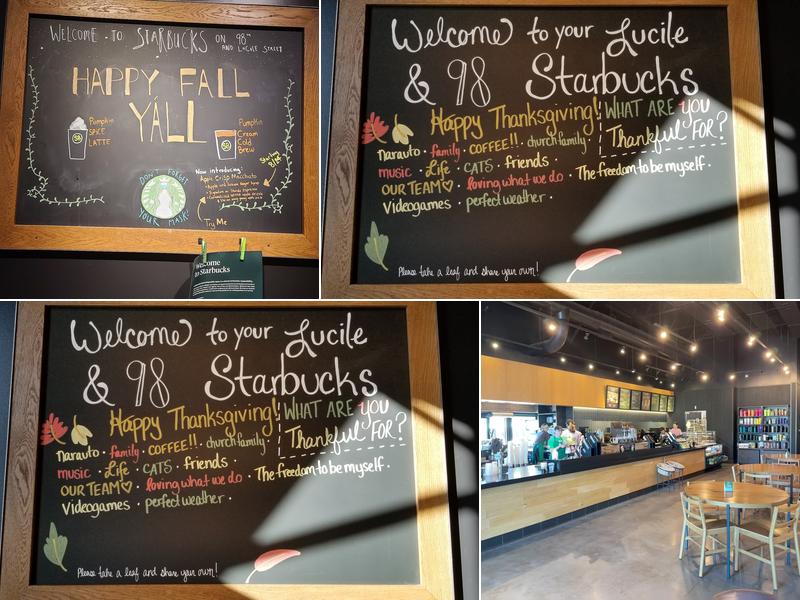 WELCOME TO STARBUCKS ON 98TH
AND LUCILE STREET
HAPPY FALL
Y'ALL
Pumpkin
SPICE
LATTE
Pumpkin
Cream
Cold
Brew
Starting
Now introducing
Apple Crisp Macchiato
DON'T FORGET
YOUR MASK!
Try Me
Welcome
to Starbucks
Welcome to your Lucile
& 98 Starbucks
Happy Thanksgiving! WHAT ARE you
Thankful FOR?
Naruto · family · COFFEE!! · church family ·
music · Life · CATS · friends ·
OUR TEAM♡ · loving what we do · The freedom to be myself ·
Videogames · perfect weather ·
Please take a leaf and share your own!
Welcome to your Lucile
& 98 Starbucks
Happy Thanksgiving! WHAT ARE you
Thankful FOR?
Naruto · family · COFFEE!! · church family ·
music · Life · CATS · friends ·
OUR TEAM♡ · loving what we do · The freedom to be myself ·
Videogames · perfect weather ·
Please take a leaf and share your own!